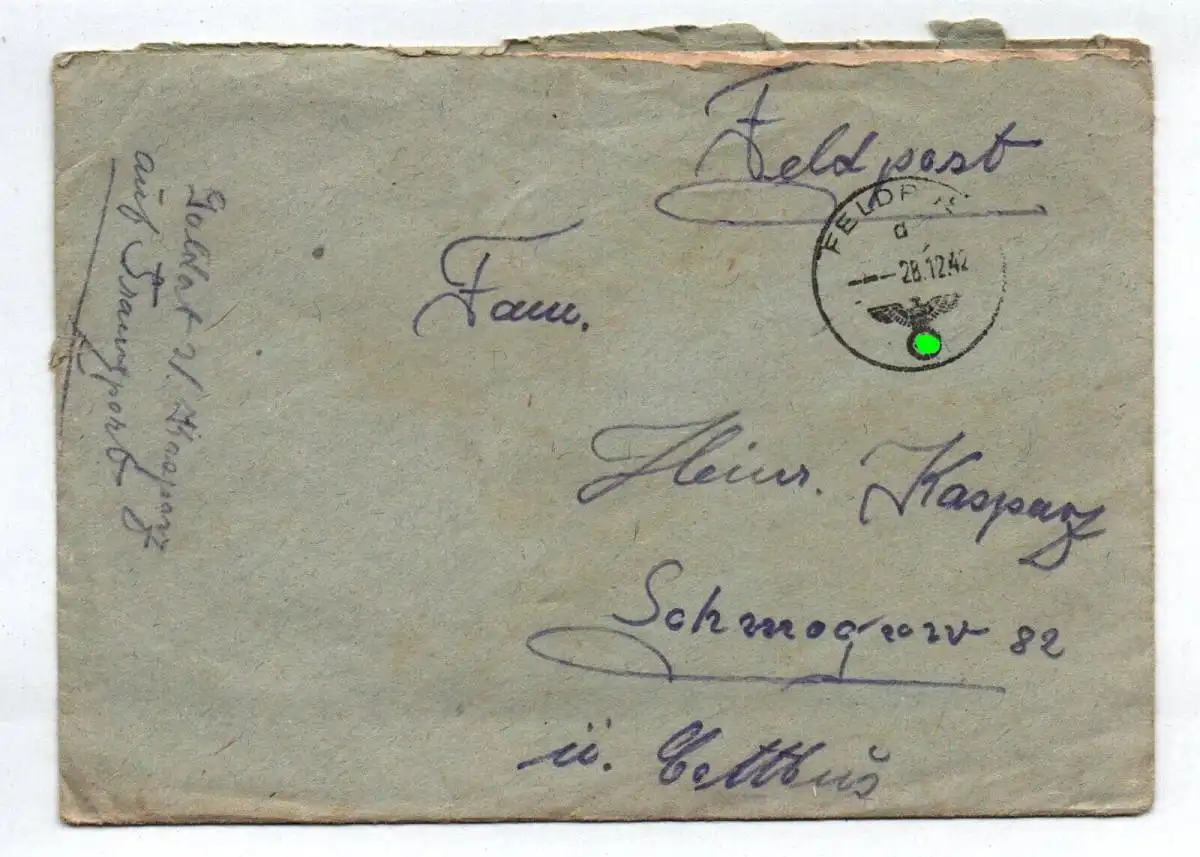 Feldpost
FELDPOST
a
28.12.42
Fam.
Heinr. Kasparz
Schmogrow 82
ü. Cottbus
Soldat H. Kasparz
auf Transport